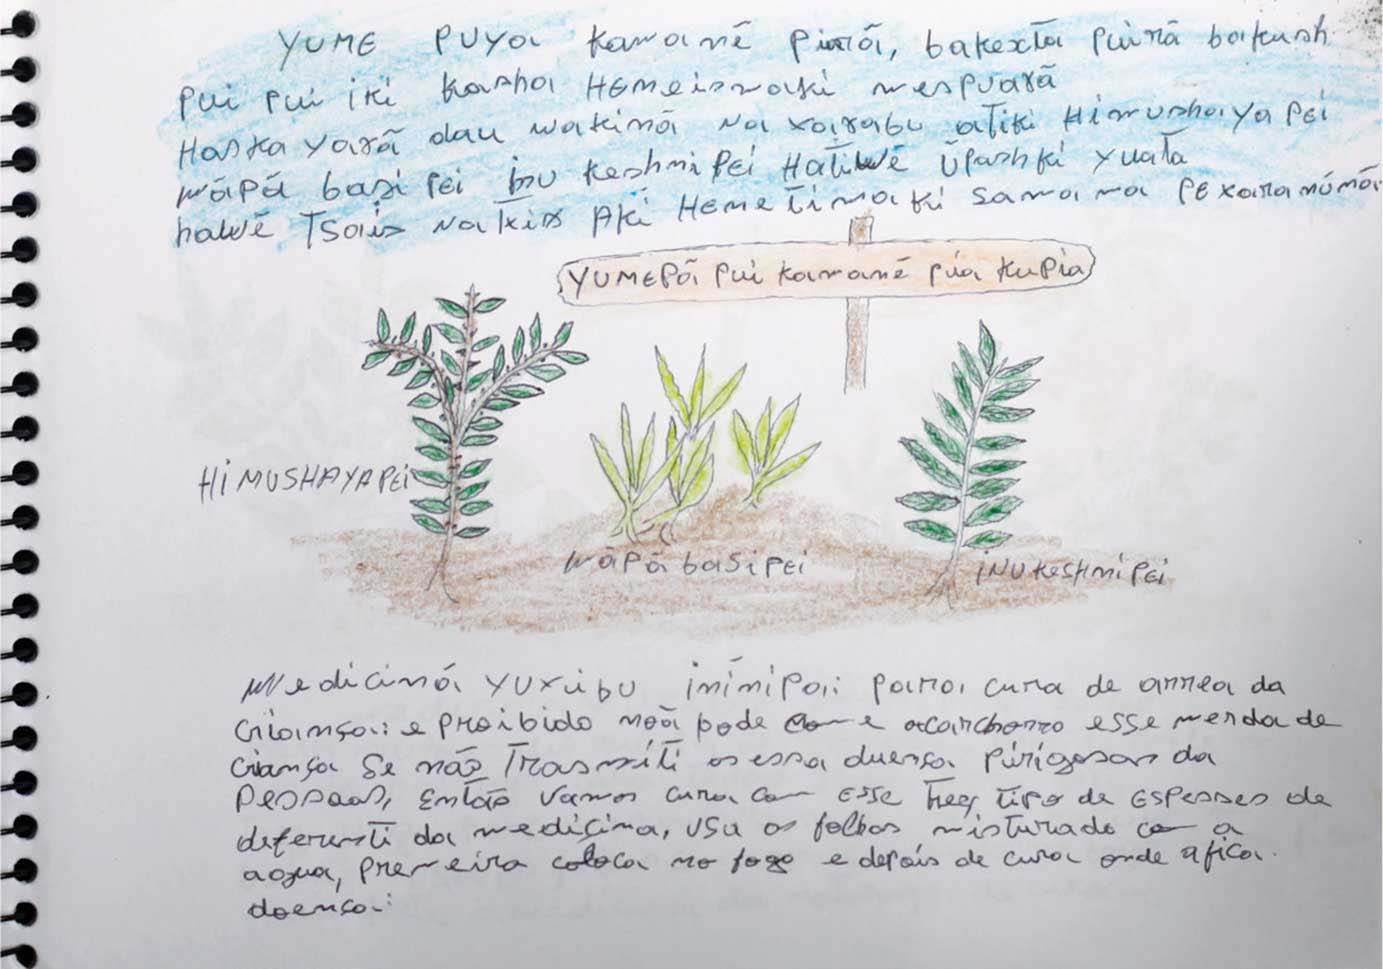 YUME PUYA Kamanẽ pinã, bakextã puinã bakush
pui pui iki kasha Hemeismaki mespuarã
Haska yarã dau wakinã na xarabu atiki Himushaya pei
wãpã basi pei inu keshni pei Hatiwẽ ũpashki yuatã
hawẽ Tsais nakix Aki Hemetimaki samama
YUMEPÃ pui kamanẽ pia kupia
HIMUSHAYAPEI
wãpã basi pei
iNU KESHNI PEI
Medicina YUXIBU para cura de
criança: e proibido nõa pode come acarchorro esse merda de
criança se não Trasmiti os essa duença pirigosas da
pessoas, Então vamos cura com esse Treg tipo de ESPESSES de
deferenti da medicina, usa as folhas misturado com a
agua, premeira coloca no fogo e depois de cura onde a fica.
doença: